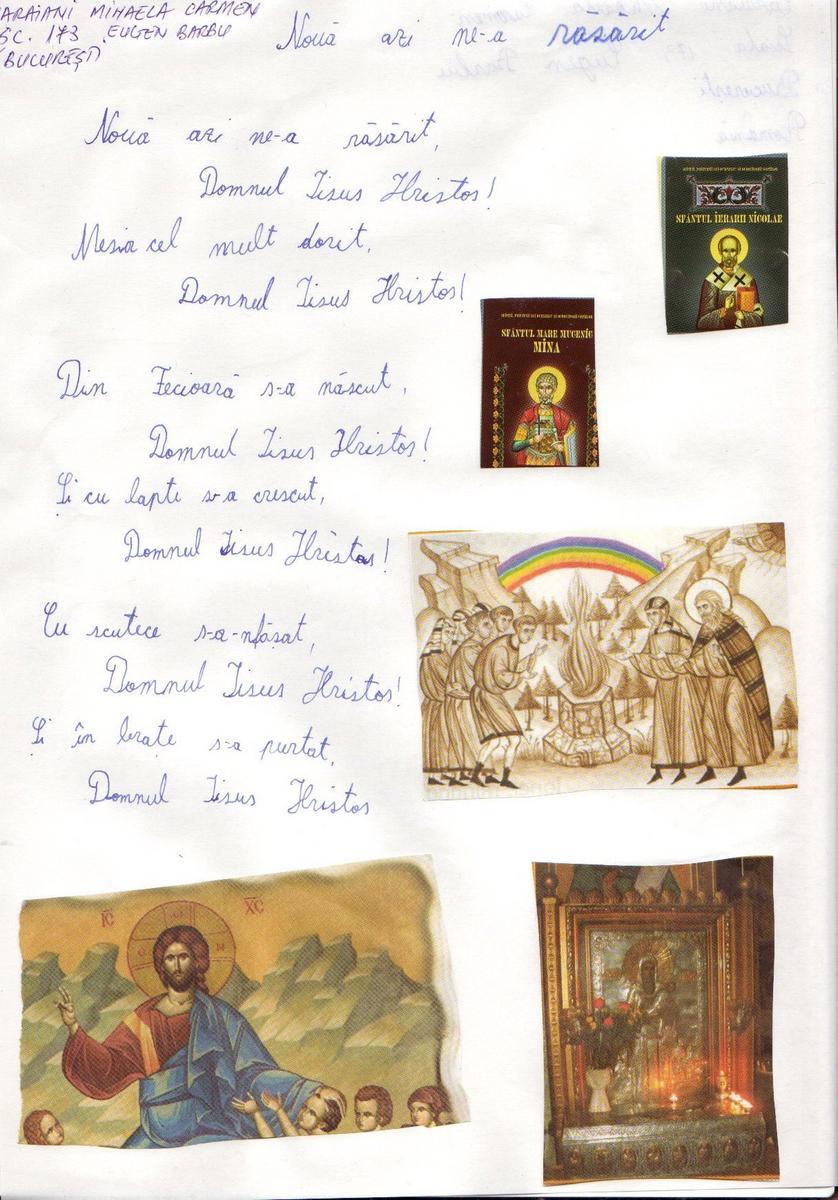 ARAIANI MIHAELA CARMEN
SC. 173 EUGEN BARBU
(BUCUREȘTI)
Nouă azi ne-a răsărit
Nouă azi ne-a răsărit,
Domnul Iisus Hristos!
Mesia cel mult dorit,
Domnul Iisus Hristos!
Din Fecioară s-a născut,
Domnul Iisus Hristos!
Și cu lapte s-a crescut,
Domnul Iisus Hristos!
Cu scutece s-a-nfășat,
Domnul Iisus Hristos!
Și în brațe s-a purtat,
Domnul Iisus Hristos
SFÂNTUL IERARH NICOLAE
SFÂNTUL MARE MUCENIC
MINA
IC XC